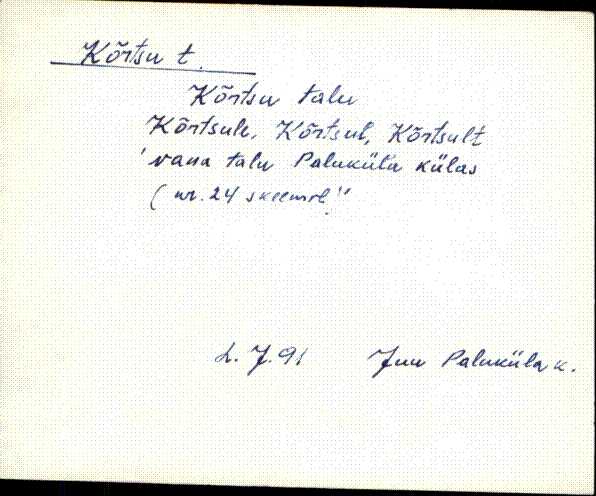 Kõrtsu t.
Kõrtsu talu
Kõrtsule, Kõrtsul, Kõrtsult
'vana talu Paluküla külas
(nr. 24 skeemil)'
L. J. 91 Juu Paluküla k.